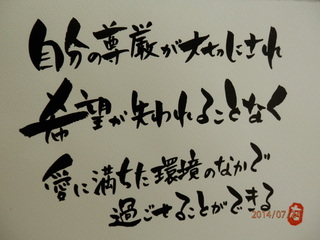 自分の尊厳が大切にされ
希望が失われることなく
愛に満ちた環境のなかで
過ごせることができる